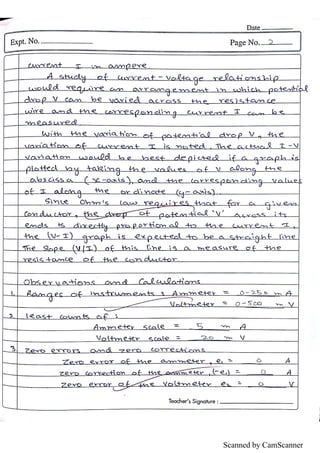 Date
Expt. No.
Page No. 2
current I in ampere.
A study of current-voltage relationship
would require an arrangement in which potential
drop V can be varied across the resistance
wire and the corresponding current I can be
measured.
With the variation of potential drop V, the
variation of current I is noted. The actual I-V
variation would be best depicted if a graph is
plotted by taking the values of V along the
abscissa (x-axis), and the corresponding values
of I along the ordinate (y-axis).
Since Ohm's law requires that for a given
conductor, the drop of potential 'V' across its
ends is directly proportional to the current I,
the (V-I) graph is expected to be a straight line
The slope (V/I) of this line is a measure of the
resistance of the conductor.
Observations and Calculations
1. Ranges of instruments : Ammeter = 0-250 m A
Voltmeter = 0-500 m V
2. least counts of :
Ammeter scale = 5 m A
Voltmeter scale = 20 m V
3. Zero errors and zero corrections
Zero error of the ammeter, e₁ = 0 A
Zero correction of the ammeter, (-e₁) = 0 A
Zero error of the voltmeter e₂ = 0 V
Teacher's Signature :
Scanned by CamScanner